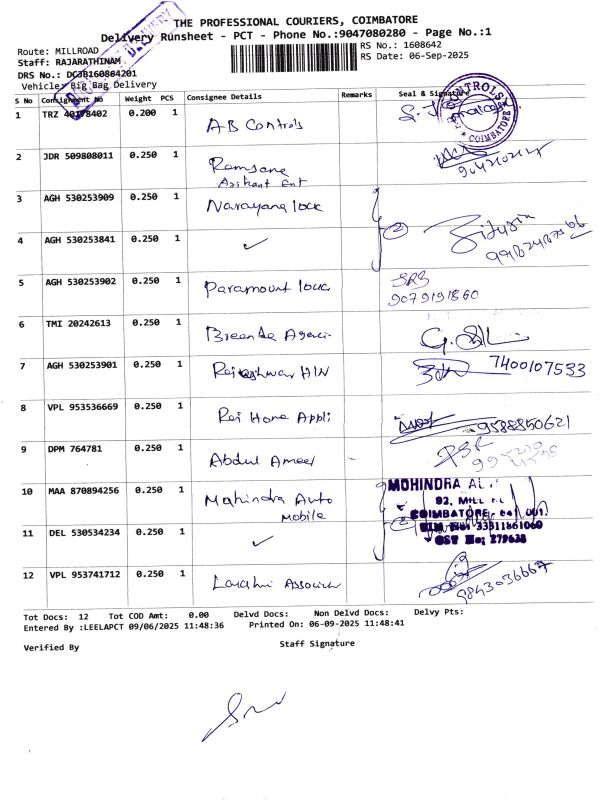 THE PROFESSIONAL COURIERS, COIMBATORE
Delivery Runsheet - PCT - Phone No.:9047080280 - Page No.:1
Route: MILLROAD
RS No.: 1608642
Staff: RAJARATHINAM
RS Date: 06-Sep-2025
DRS No.: DCJB160864201
Vehicle: Big Bag Delivery
DELIVERY
S No Consignment No Weight PCS Consignee Details Remarks Seal & Signature
1 TRZ 40178402 0.200 1 AB Controls
CONTROLS COIMBATORE
2 JDR 509808011 0.250 1 Ramsane
Arihant Ent
3 AGH 530253909 0.250 1 Narayana lock
4 AGH 530253841 0.250 1 ✓ 2
5 AGH 530253902 0.250 1 Paramount lock SRS
9079191860
6 TMI 20242613 0.250 1
7 AGH 530253901 0.250 1 Rajeshwar H/W 7400107533
8 VPL 953536669 0.250 1 Rei Home Appli 9538850621
9 DPM 764781 0.250 1 Abdul Ameer
10 MAA 870894256 0.250 1 Mahindra Auto
Mobile
MOHINDRA
92, MILL
COIMBATORE 641 001.
TIN No: 33311861060
CST No: 279638
11 DEL 530534234 0.250 1 ✓ 2
12 VPL 953741712 0.250 1 9843036667
Tot Docs: 12 Tot COD Amt: 0.00 Delvd Docs: Non Delvd Docs: Delvy Pts:
Entered By :LEELAPCT 09/06/2025 11:48:36 Printed On: 06-09-2025 11:48:41
Verified By
Staff Signature